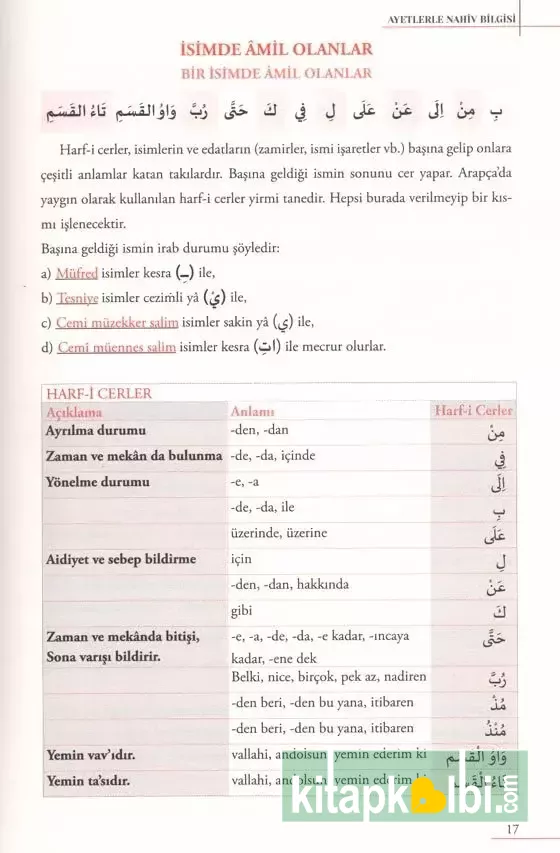 AYETLERLE NAHİV BİLGİSİ
İSİMDE ÂMİL OLANLAR
BİR İSİMDE ÂMİL OLANLAR
بِ مِنْ اِلَى عَنْ عَلَى لِ فِي كَ حَتَّى رُبَّ وَاوُ الْقَسَمِ تَاءُ الْقَسَمِ
Harf-i cerler, isimlerin ve edatların (zamirler, ismi işaretler vb.) başına gelip onlara
çeşitli anlamlar katan takılardır. Başına geldiği ismin sonunu cer yapar. Arapça'da
yaygın olarak kullanılan harf-i cerler yirmi tanedir. Hepsi burada verilmeyip bir kıs-
mı işlenecektir.
Başına geldiği ismin irab durumu şöyledir:
a) Müfred isimler kesra (ـِ) ile,
b) Tesniye isimler cezimli yâ (يْ) ile,
c) Cemi müzekker salim isimler sakin yâ (ي) ile,
d) Cemî müennes salim isimler kesra (اتِ) ile mecrur olurlar.
HARF-İ CERLER
Açıklama Anlamı Harf-i Cerler
Ayrılma durumu -den, -dan مِنْ
Zaman ve mekân da bulunma -de, -da, içinde فِي
Yönelme durumu -e, -a اِلَى
-de, -da, ile بِ
üzerinde, üzerine عَلَى
Aidiyet ve sebep bildirme için لِ
-den, -dan, hakkında عَنْ
gibi كَ
Zaman ve mekânda bitişi, -e, -a, -de, -da, -e kadar, -ıncaya حَتَّى
Sona varışı bildirir. kadar, -ene dek
Belki, nice, birçok, pek az, nadiren رُبَّ
-den beri, -den bu yana, itibaren مُذْ
-den beri, -den bu yana, itibaren مُنْذُ
Yemin vav'ıdır. vallahi, andolsun, yemin ederim ki وَاوُ الْقَسَمِ
Yemin ta'sıdır. vallahi, andolsun, yemin ederim ki تَاءُ الْقَسَمِ
kitapkalbi.com
17